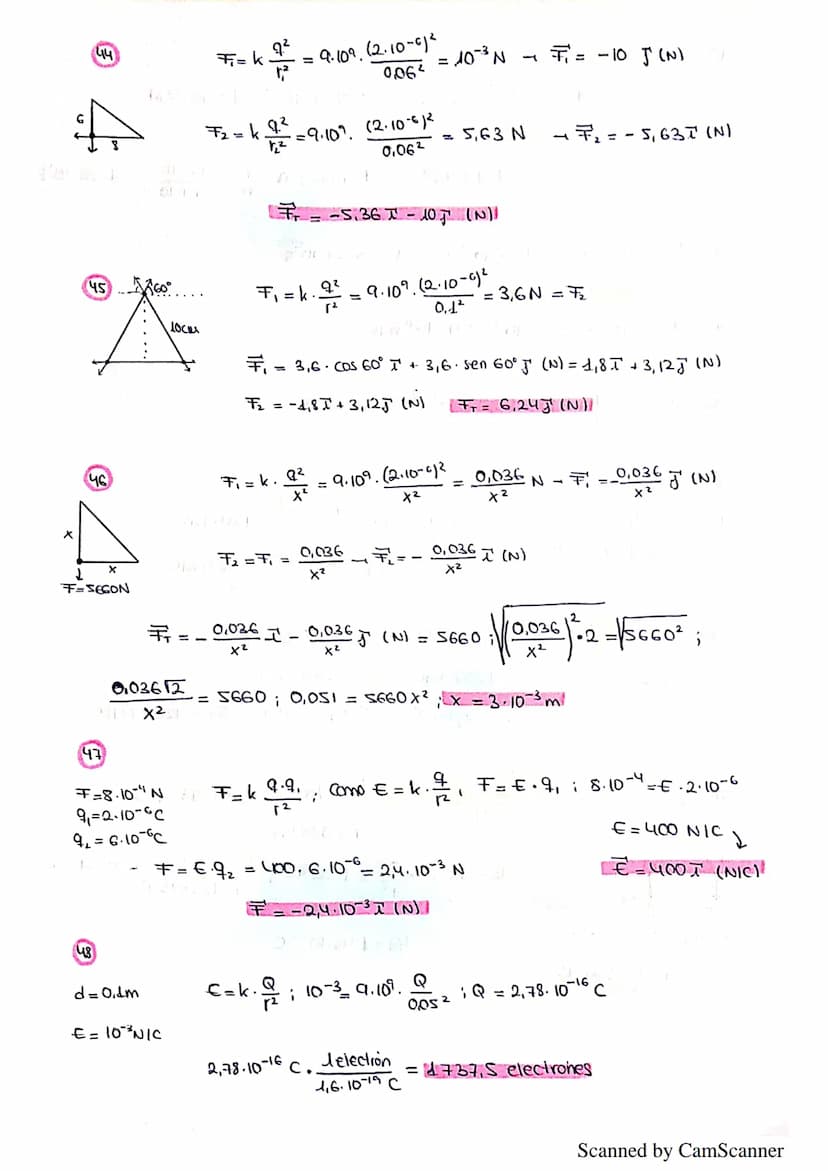 44
F₁ = k q²/r₁² = 9·10⁹ · (2·10⁻⁶)²/0,06² = 10⁻³ N → F⃗₁ = -10 j⃗ (N)
6
8
F₂ = k q²/r₂² = 9·10⁹ · (2·10⁻⁶)²/0,06² = 5,63 N → F⃗₂ = -5,63 i⃗ (N)
F⃗T = -5,36 i⃗ - 10 j⃗ (N)
45
60°
10cm
F₁ = k · q²/r² = 9·10⁹ · (2·10⁻⁶)²/0,1² = 3,6 N = F₂
F⃗₁ = 3,6 · cos 60° i⃗ + 3,6 · sen 60° j⃗ (N) = 1,8 i⃗ + 3,12 j⃗ (N)
F₂ = -1,8 i⃗ + 3,12 j⃗ (N) FT = 6,24 j⃗ (N)
46
F₁ = k · q²/x² = 9·10⁹ · (2·10⁻⁶)²/x² = 0,036/x² N → F⃗₁ = -0,036/x² j⃗ (N)
x
x
F=5660N
F₂ = F₁ = 0,036/x² → F⃗₂ = - 0,036/x² i⃗ (N)
F⃗T = - 0,036/x² i⃗ - 0,036/x² j⃗ (N) = 5660 ; √((0,036/x²)² · 2) = √5660² ;
0,036√2/x² = 5660 ; 0,051 = 5660x² ; x = 3·10⁻³ m
47
F=8·10⁻⁴ N
q₁=2·10⁻⁶ C
q₂=6·10⁻⁶ C
F = k q·q₁/r² ; como E = k · q/r² , F = E·q₁ ; 8·10⁻⁴ = E·2·10⁻⁶
E = 400 N/C
- F = E·q₂ = 400 · 6·10⁻⁶ = 2,4·10⁻³ N
E⃗ = 400 i⃗ (N/C)
F⃗ = -2,4·10⁻³ i⃗ (N)
48
d = 0,1m
E = 10⁻³ N/C
E = k · Q/r² ; 10⁻³ = 9·10⁹ · Q/0,05² ; Q = 2,78·10⁻¹⁶ C
2,78·10⁻¹⁶ C · 1 electrón/1,6·10⁻¹⁹ C = 1737,5 electrones
Scanned by CamScanner